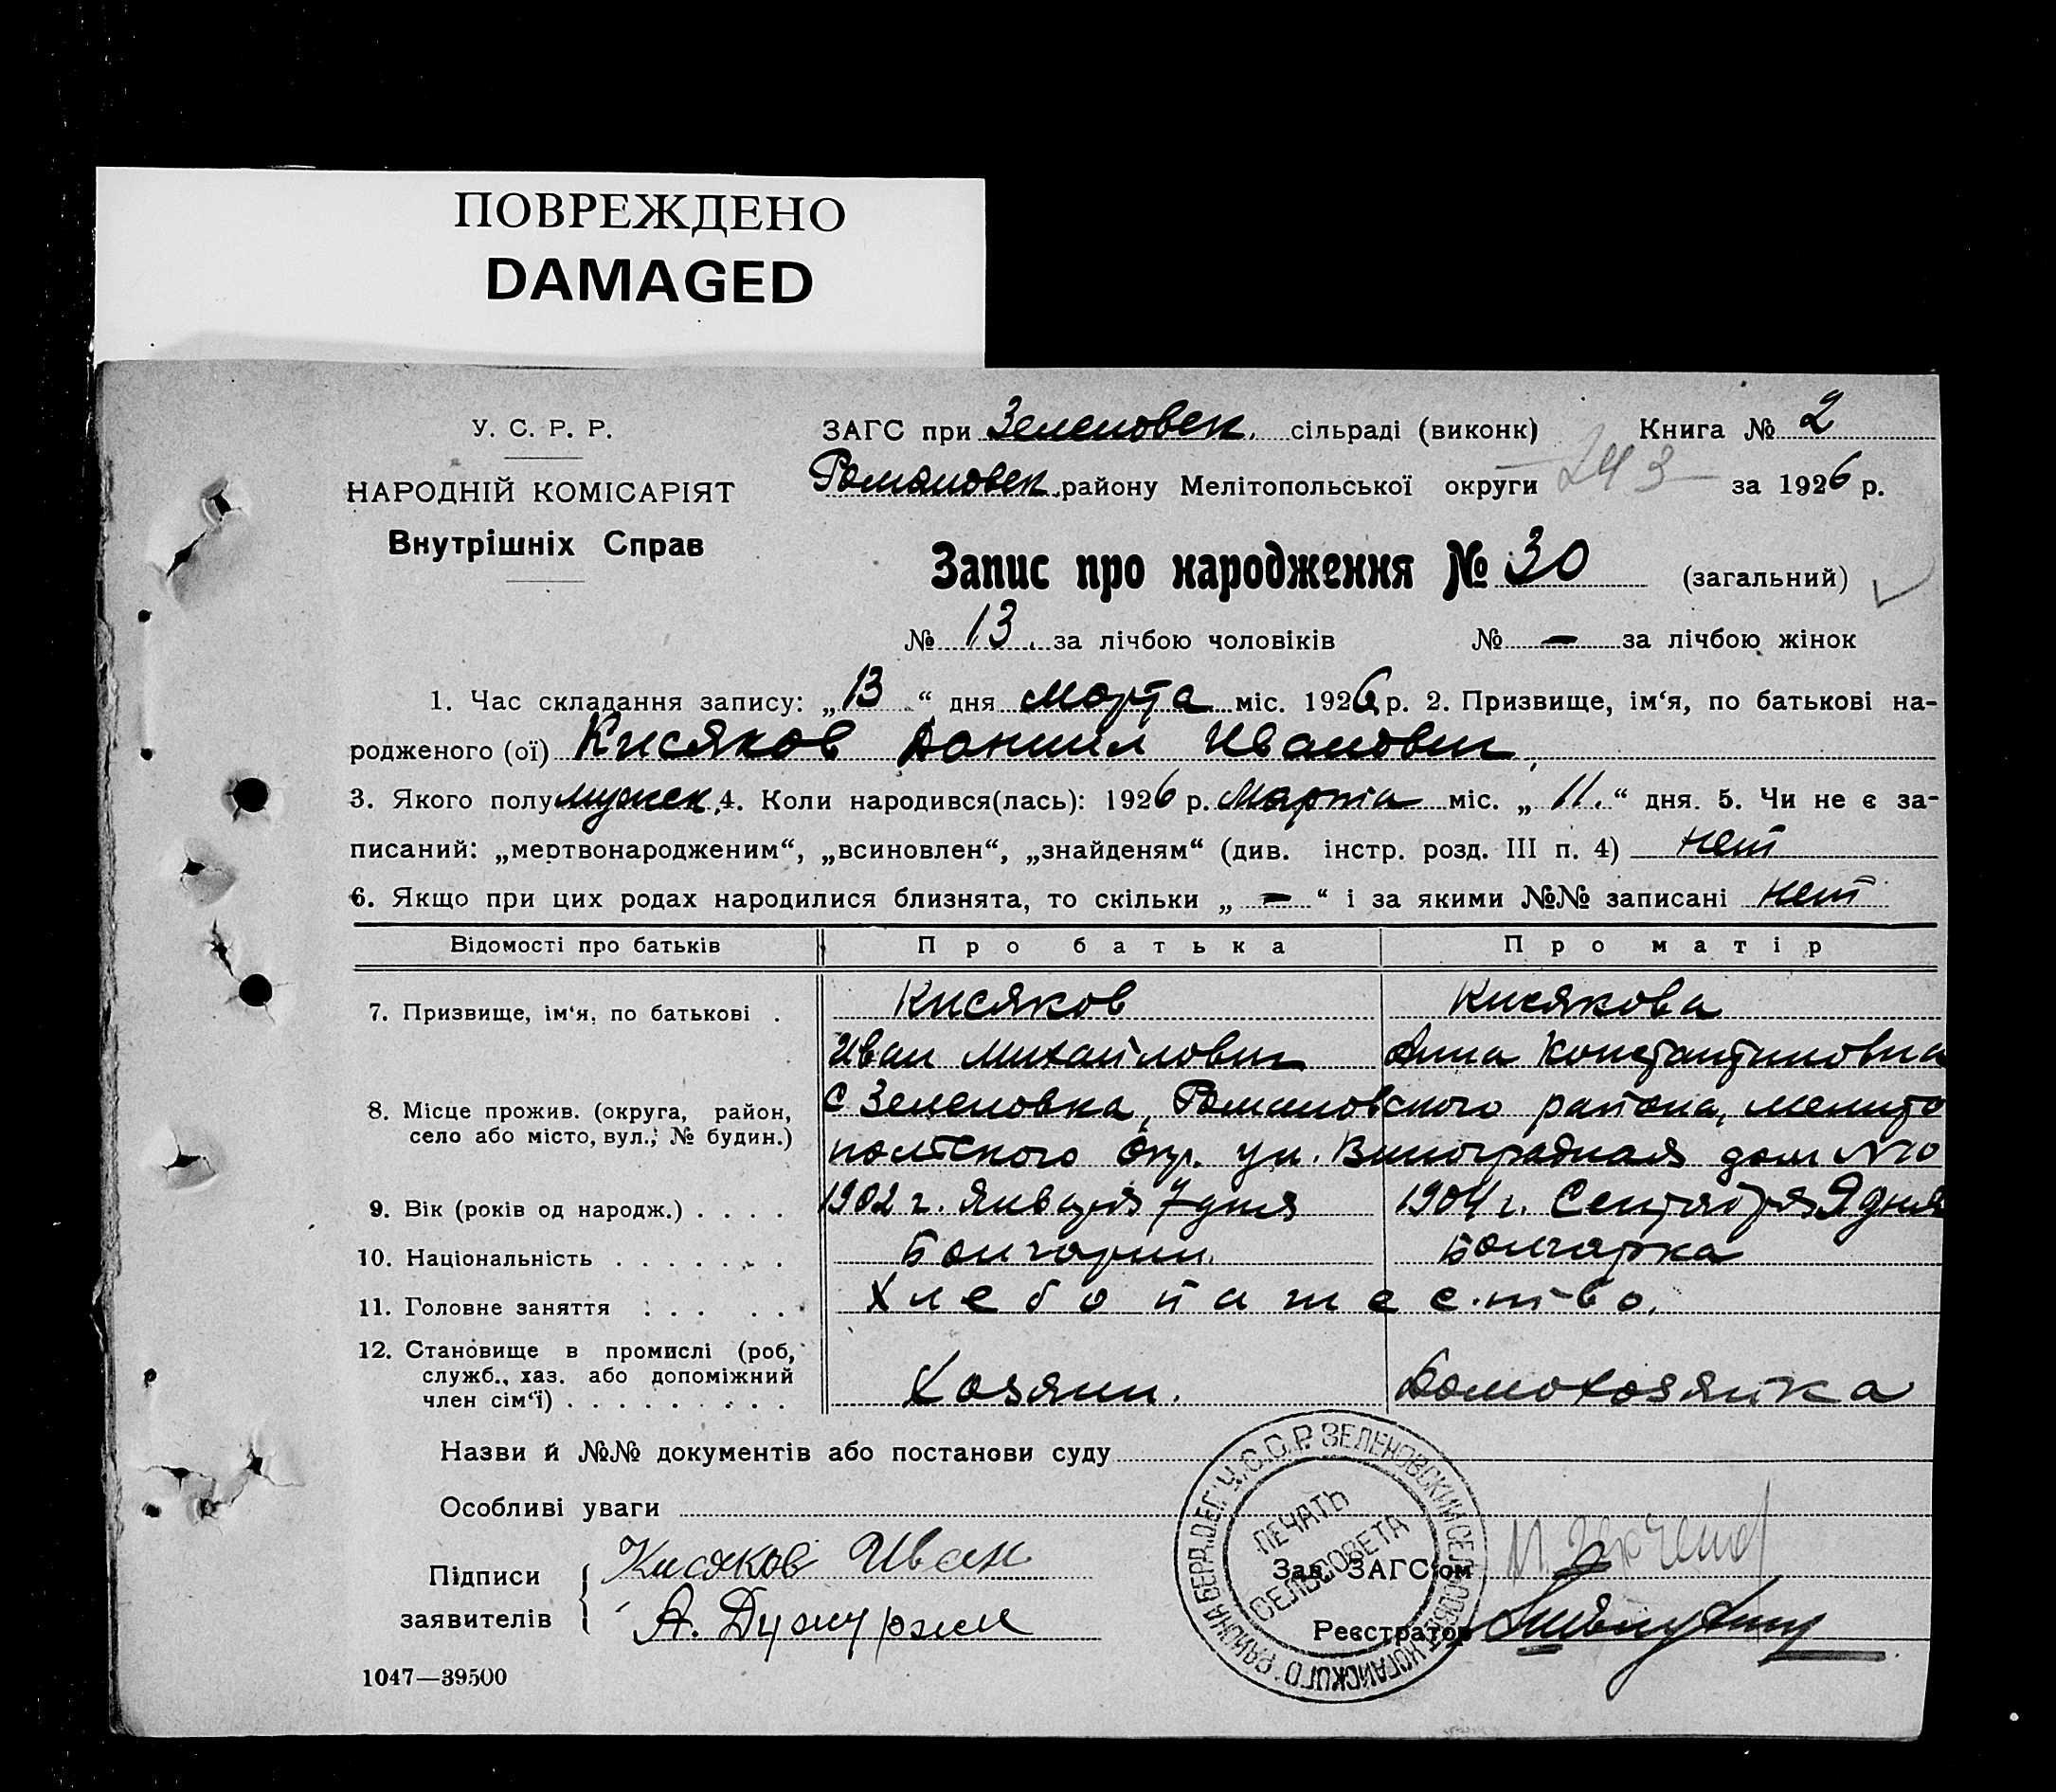 ПОВРЕЖДЕНО
DAMAGED
У. С. Р. Р.
НАРОДНІЙ КОМІСАРІЯТ
Внутрішніх Справ
ЗАГС при Зеленовск. сільраді (виконк) Книга № 2
Романовск. району Мелітопольської округи 243 за 1926 р.
Запис про народження № 30 (загальний)
№ 13. за лічбою чоловіків № — за лічбою жінок
1. Час складання запису: „13“ дня Марта міс. 1926 р. 2. Призвище, ім‘я, по батькові на-
родженого (ої) Кисяков Даниил Иванович
3. Якого полу мужск. 4. Коли народився(лась): 1926 р. Марта міс. „11.“ дня. 5. Чи не є за-
писаний: „мертвонародженим“, „всиновлен“, „знайденям“ (див. інстр. розд. III п. 4) нет
6. Якщо при цих родах народилися близнята, то скільки „—“ і за якими №№ записані нет
Відомості про батьків Про батька Про матір
7. Призвище, ім‘я, по батькові . Кисяков Кисякова
Иван Михайлович Анна Константиновна
8. Місце прожив. (округа, район, село або місто, вул., № будин.) с Зеленовка, Романовского района, мелито
польского окр. ул. Виноградная дом №10
9. Вік (років од народж.) . . . . 1902 г. Января 7 дня 1904 г. Сентября 9 дня
10. Національність . . . . . . . Болгарин. Болгарка
11. Головне заняття . . . . . Хлебопашество.
12. Становище в промислі (роб,
служб., хаз. або допоміжний
член сім‘ї) . . . . . . . . . Хозяин. Домохозяйка
Назви й №№ документів або постанови суду
Особливі уваги
Підписи заявителів Кисяков Иван
А.
Зав. ЗАГС‘ом
Реєстратор
У.С.С.Р. ЗЕЛЕНОВСКИЙ СЕЛЬСОВЕТ НОГАЙСКОГО РАЙОНА БЕРД.
ПЕЧАТЬ
СЕЛЬСОВЕТА
1047—39500